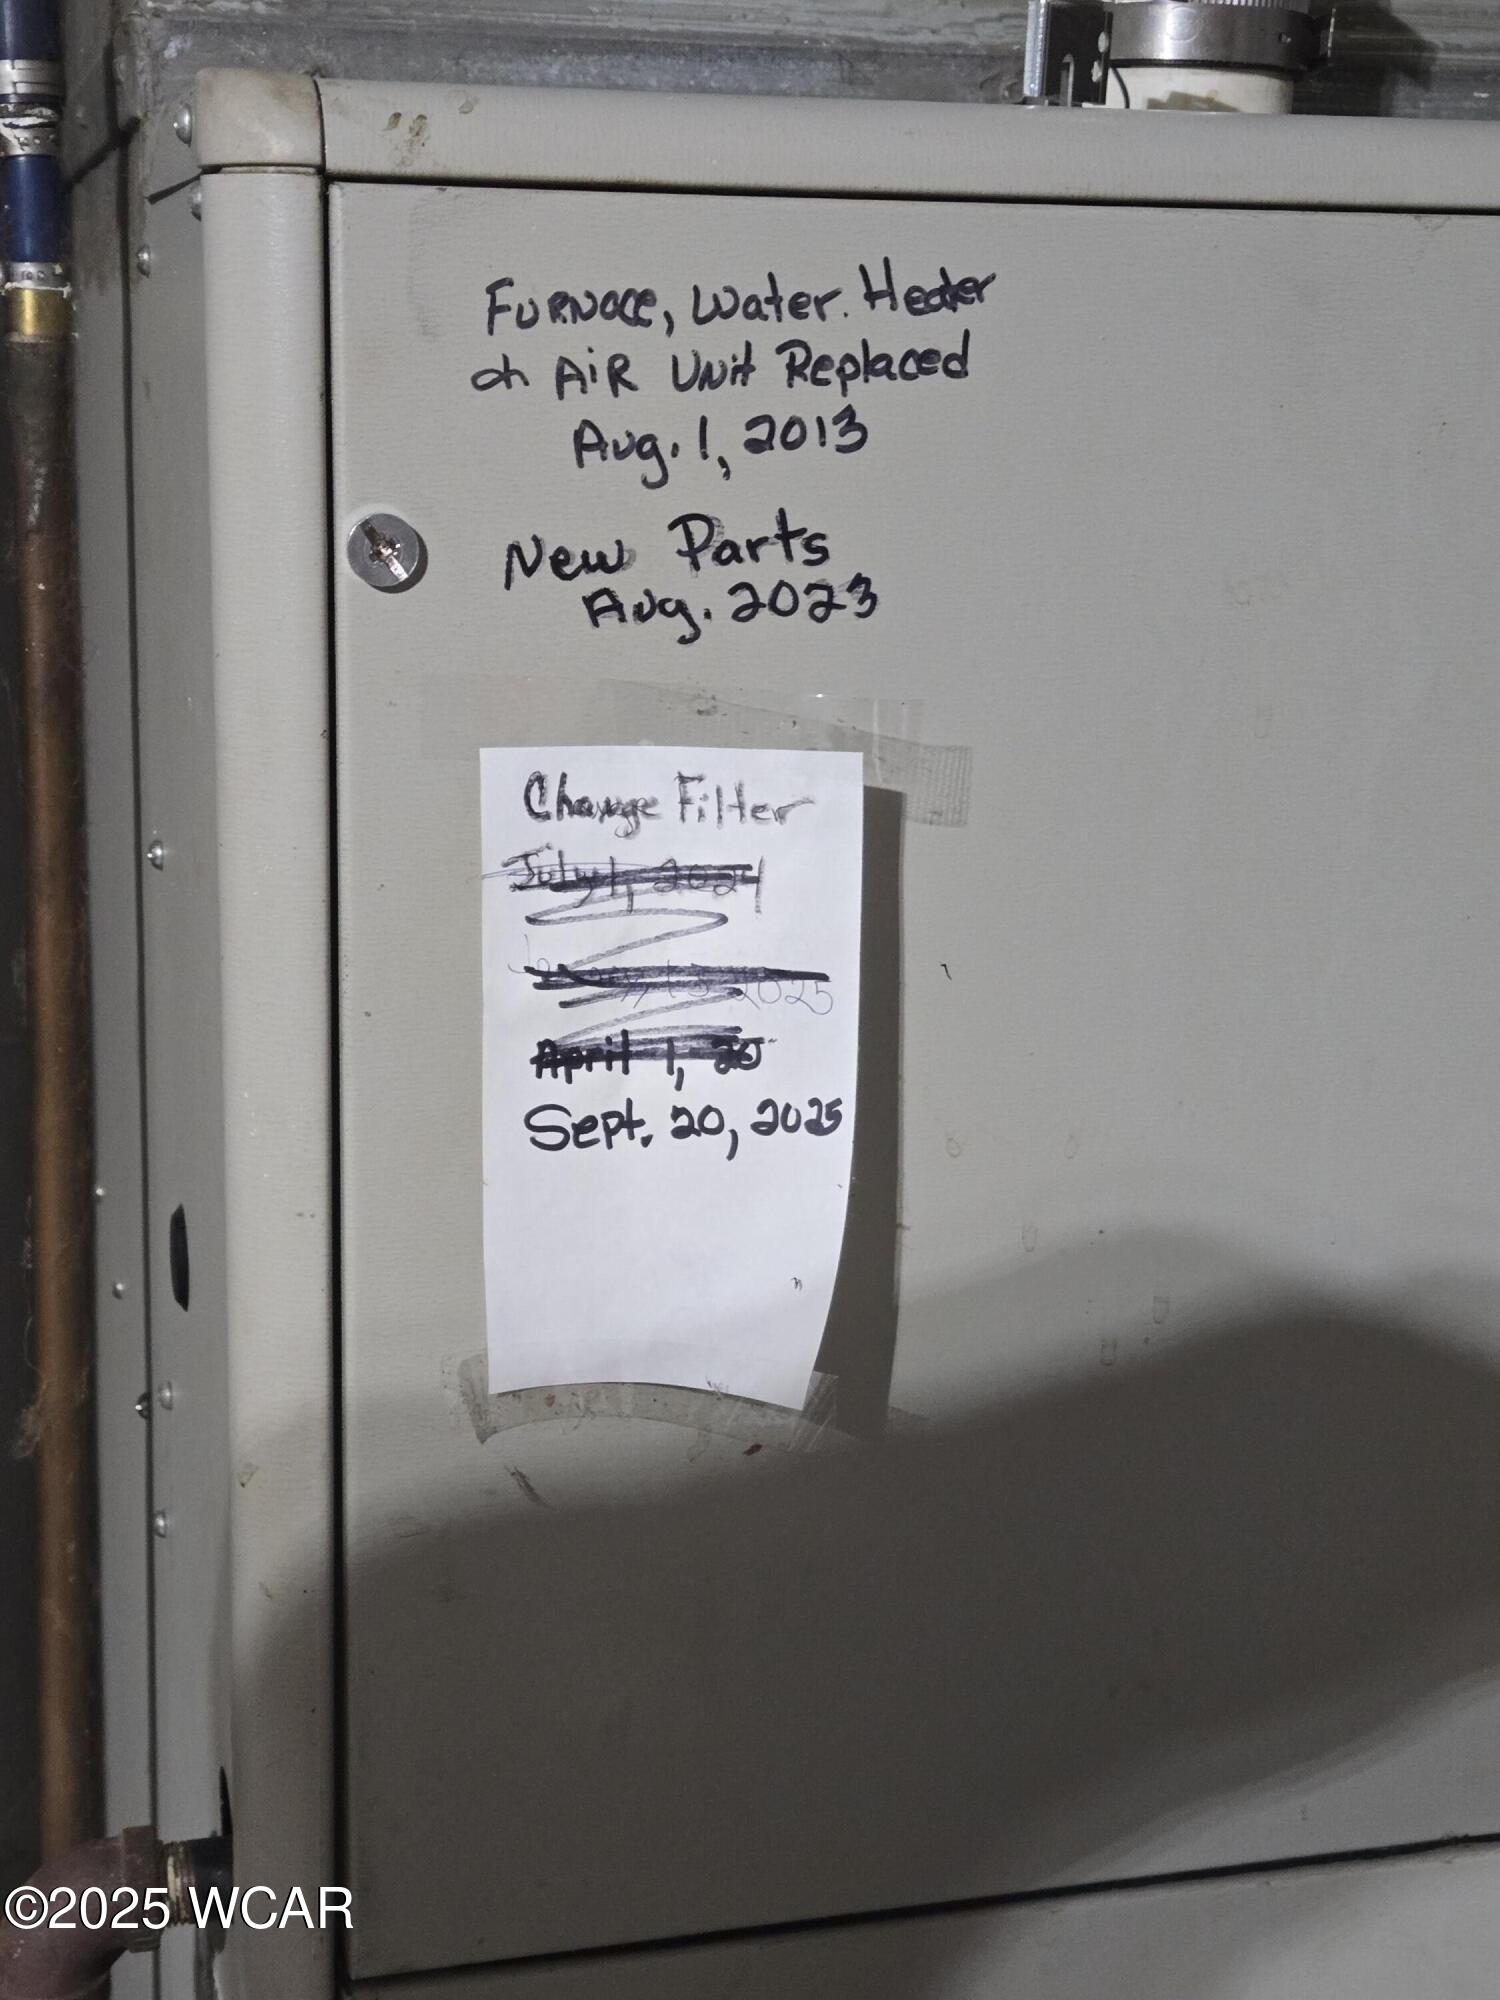 Furnace, Water. Heater
& AiR Unit Replaced
Aug. 1, 2013
New Parts
Aug. 2023
Change Filter
July 1, 2024
2025
April 1, 20
Sept. 20, 2025
©2025 WCAR